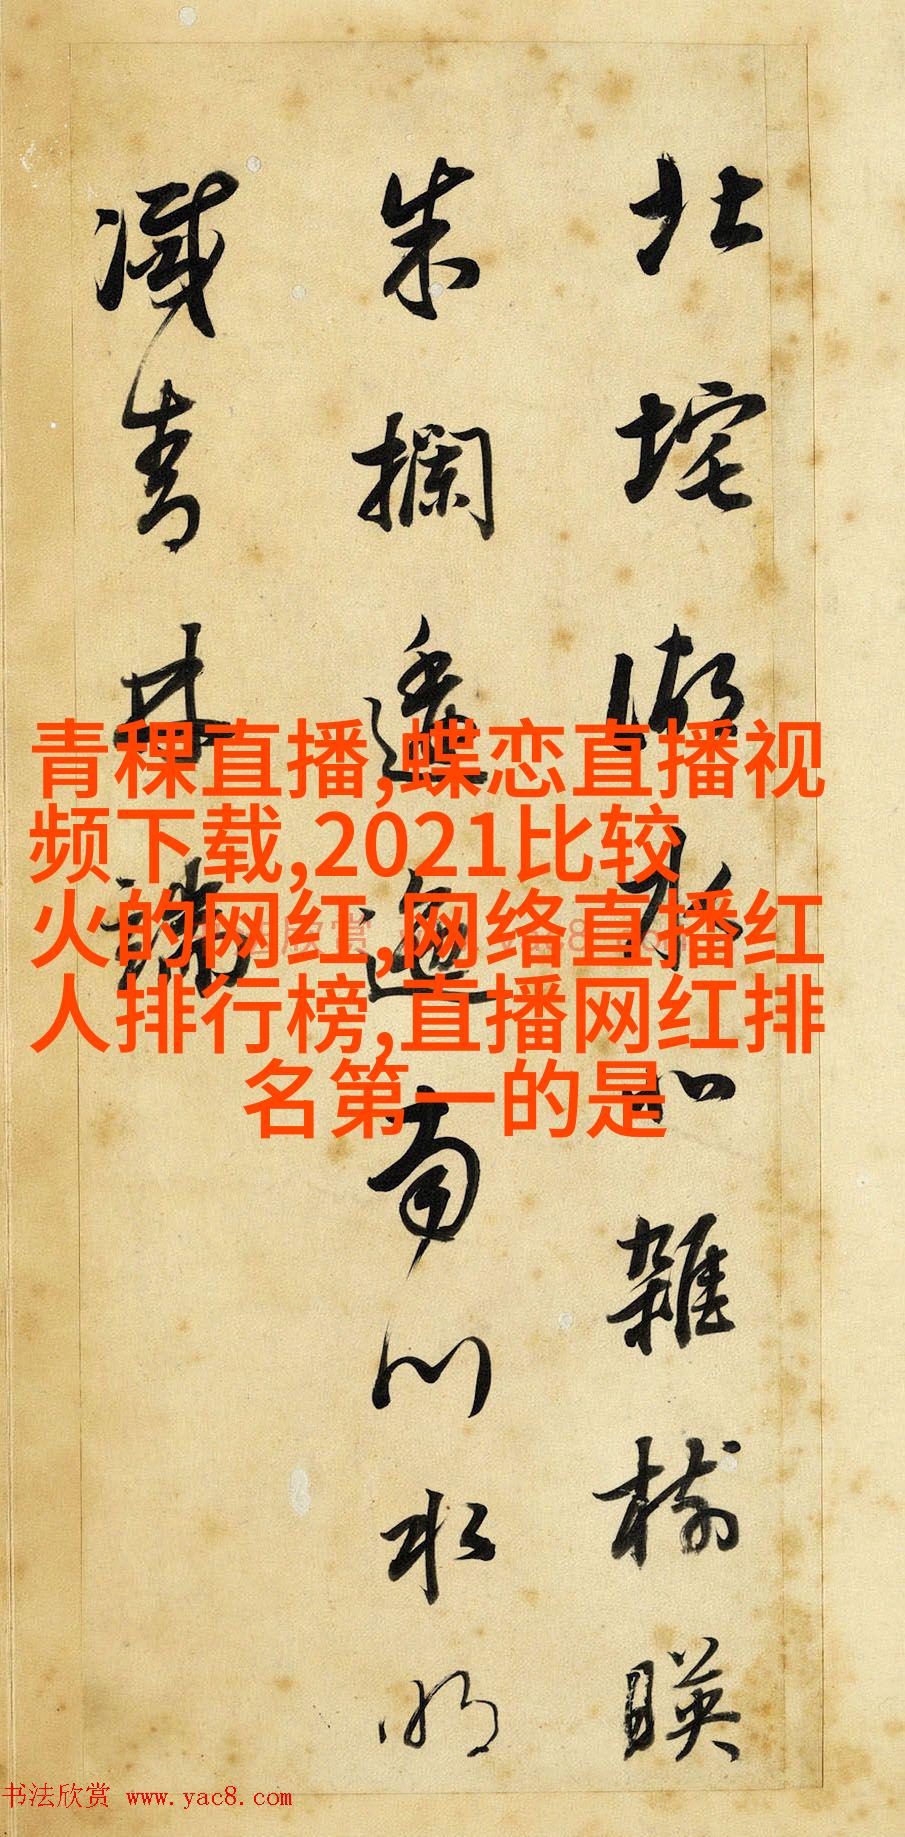 北垞湖水北雜樹暎
朱攔逶迤南川水明
滅青林端
青稞直播,蝶恋直播视
频下载,2021比较
火的网红,网络直播红
人排行榜,直播网红排
名第一的是
书法欣赏 www.yac8.com